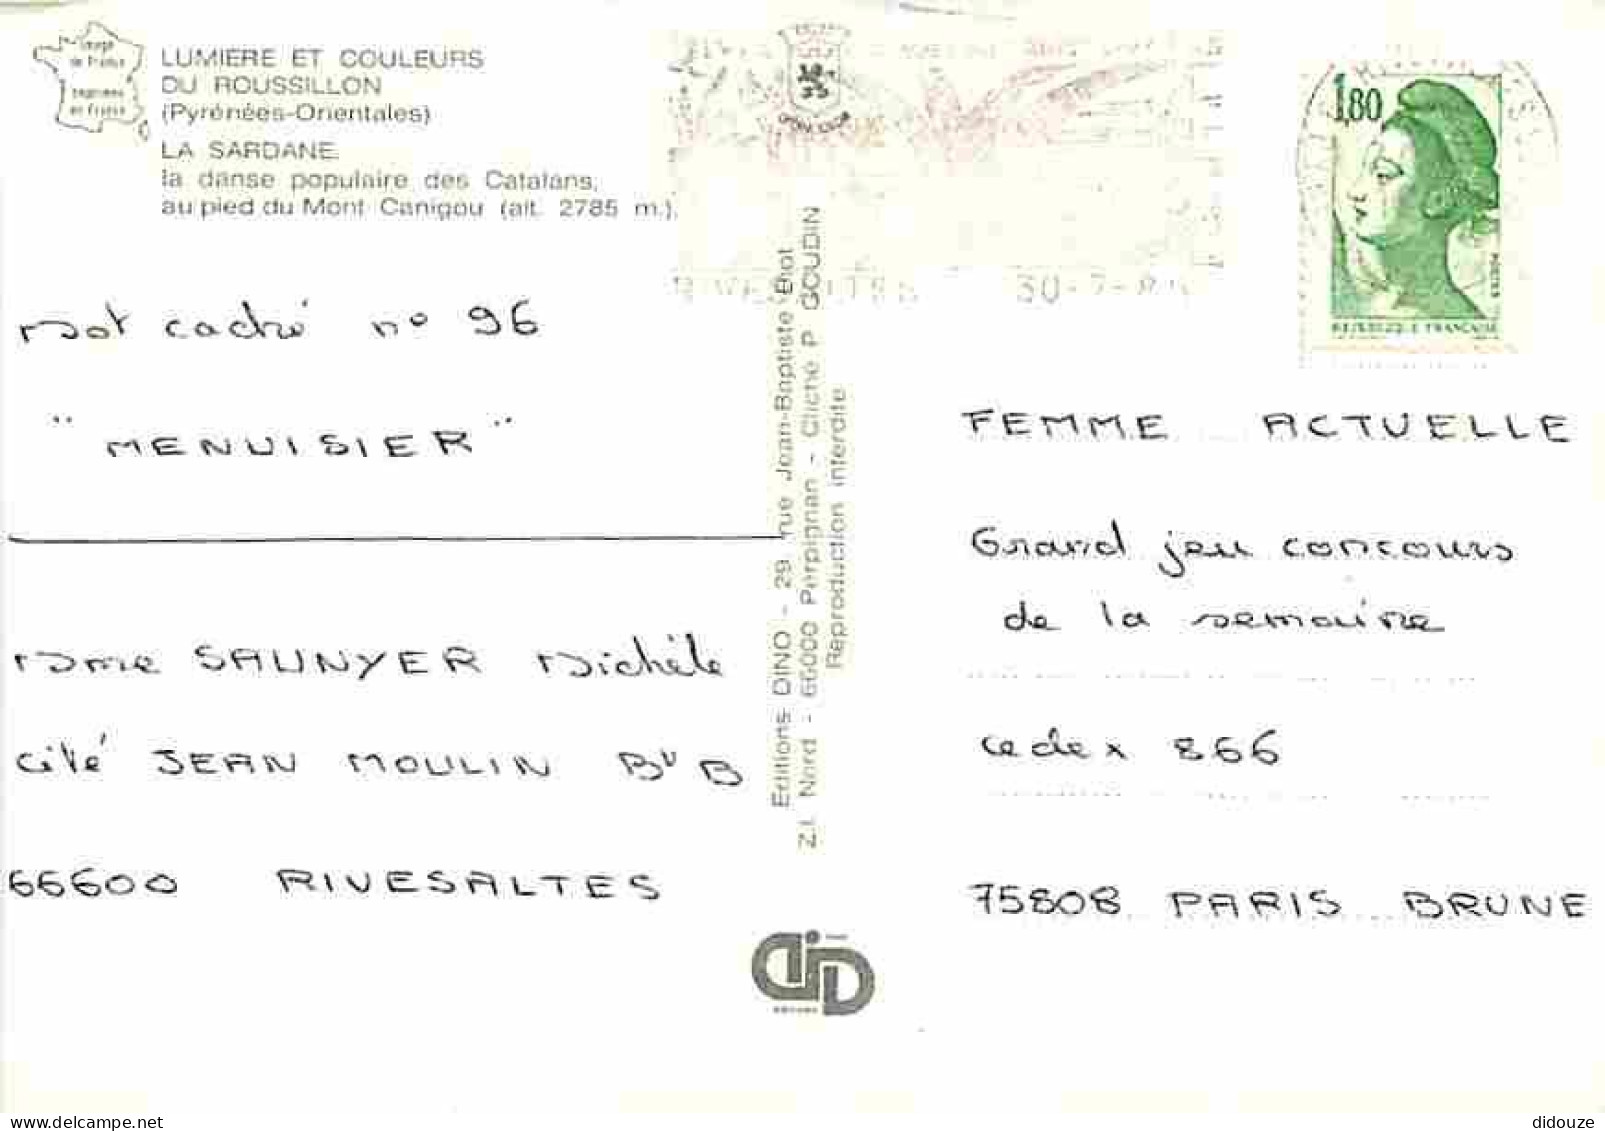 Image
de France
LUMIERE ET COULEURS
DU ROUSSILLON
(Pyrénées-Orientales)
LA SARDANE
la danse populaire des Catalans,
au pied du Mont Canigou (alt. 2785 m.).
Mot caché n° 96
"MENUISIER"
Mme SAUNYER Michèle
cité JEAN MOULIN Bt B
66600 RIVESALTES
Editions DINO - 29 rue Jean-Baptiste Biot
Z.I. Nord - 66000 Perpignan - Cliché P. GOUDIN
Reproduction interdite
1,80
POSTES
REPUBLIQUE FRANÇAISE
30-7-86
FEMME ACTUELLE
Grand jeu concours
de la semaine
cedex 866
75808 PARIS BRUNE
didouze